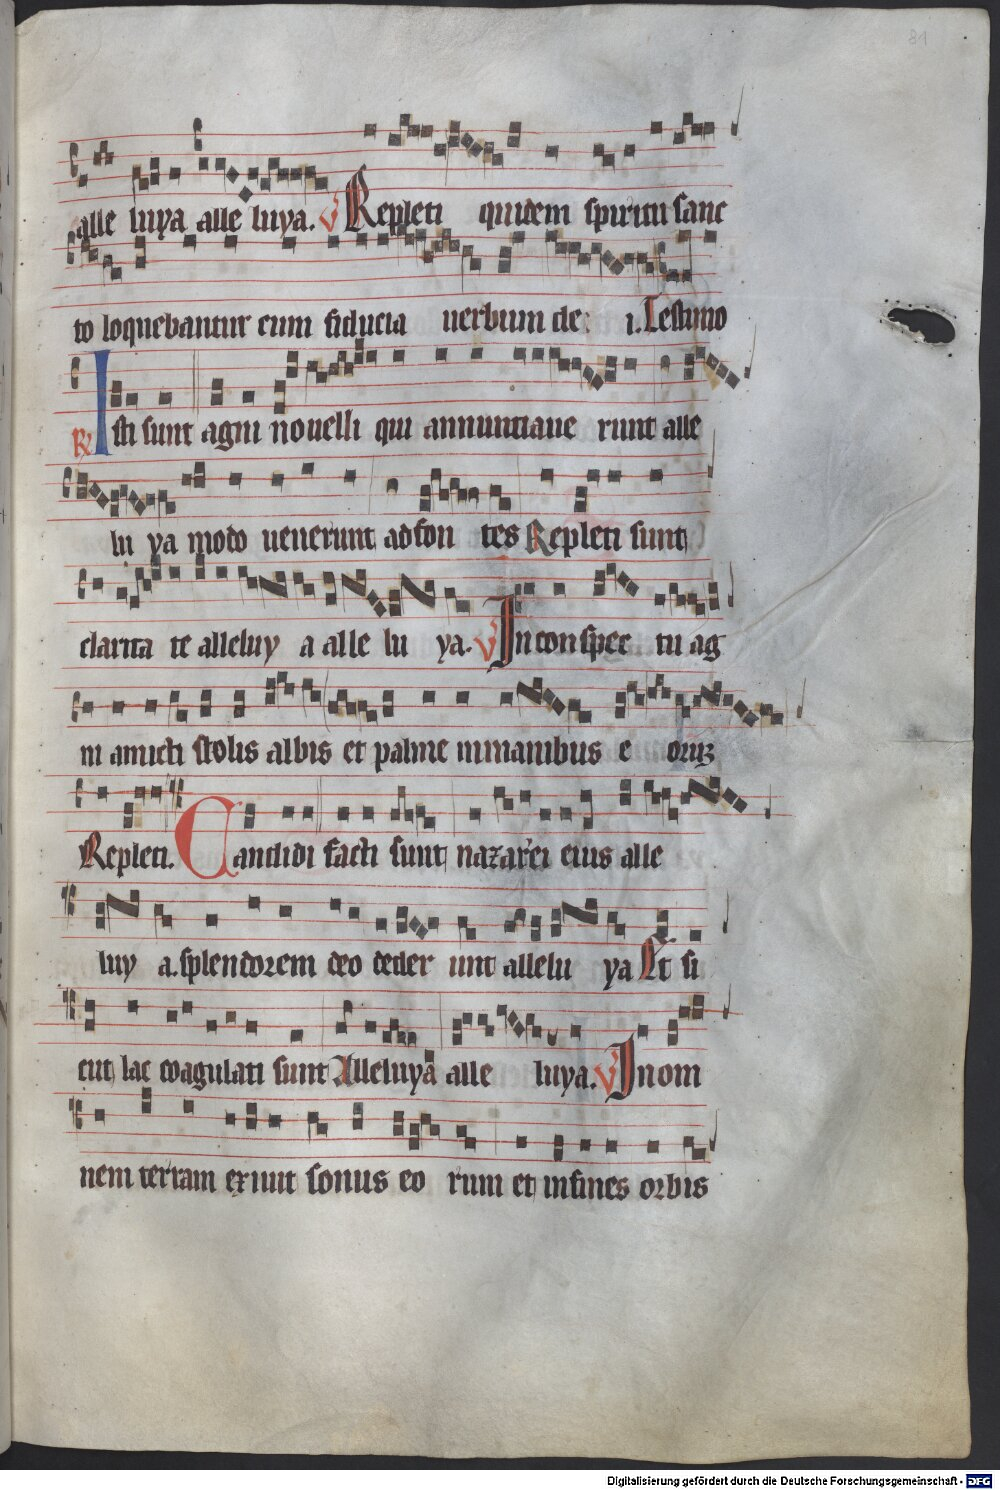 81
alle luya alle luya. V Repleti quidem spiritu sanc
to loquebantur cum fiducia uerbum de i. Testimo
R Isti sunt agni nouelli qui annunciaue runt alle
lu ya modo uenerunt ad fon tes Repleti sunt
clarita te alleluy a alle lu ya. V In conspec tu ag
ni amicti stolis albis et palme in manibus e oruꝫ
Repleti. Candidi facti sunt nazarei eius alle
luy a. splendorem deo deder unt allelu ya Et si
cut lac coagulati sunt Alleluya alle luya. V In om
nem terram exiuit sonus eo rum et in fines orbis
Digitalisierung gefördert durch die Deutsche Forschungsgemeinschaft - DFG